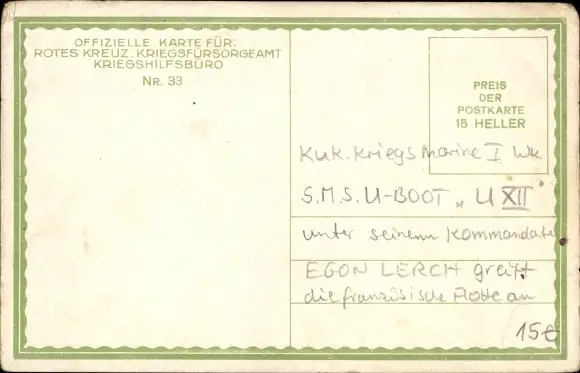 OFFIZIELLE KARTE FÜR:
ROTES KREUZ, KRIEGSFÜRSORGEAMT
KRIEGSHILFSBÜRO
NR. 33
PREIS
DER
POSTKARTE
15 HELLER
KuK. Kriegsmarine I WK
S.M.S. U-BOOT „U XII"
unter seinem Kommandate
EGON LERCH greift
die französische Flotte an
15€